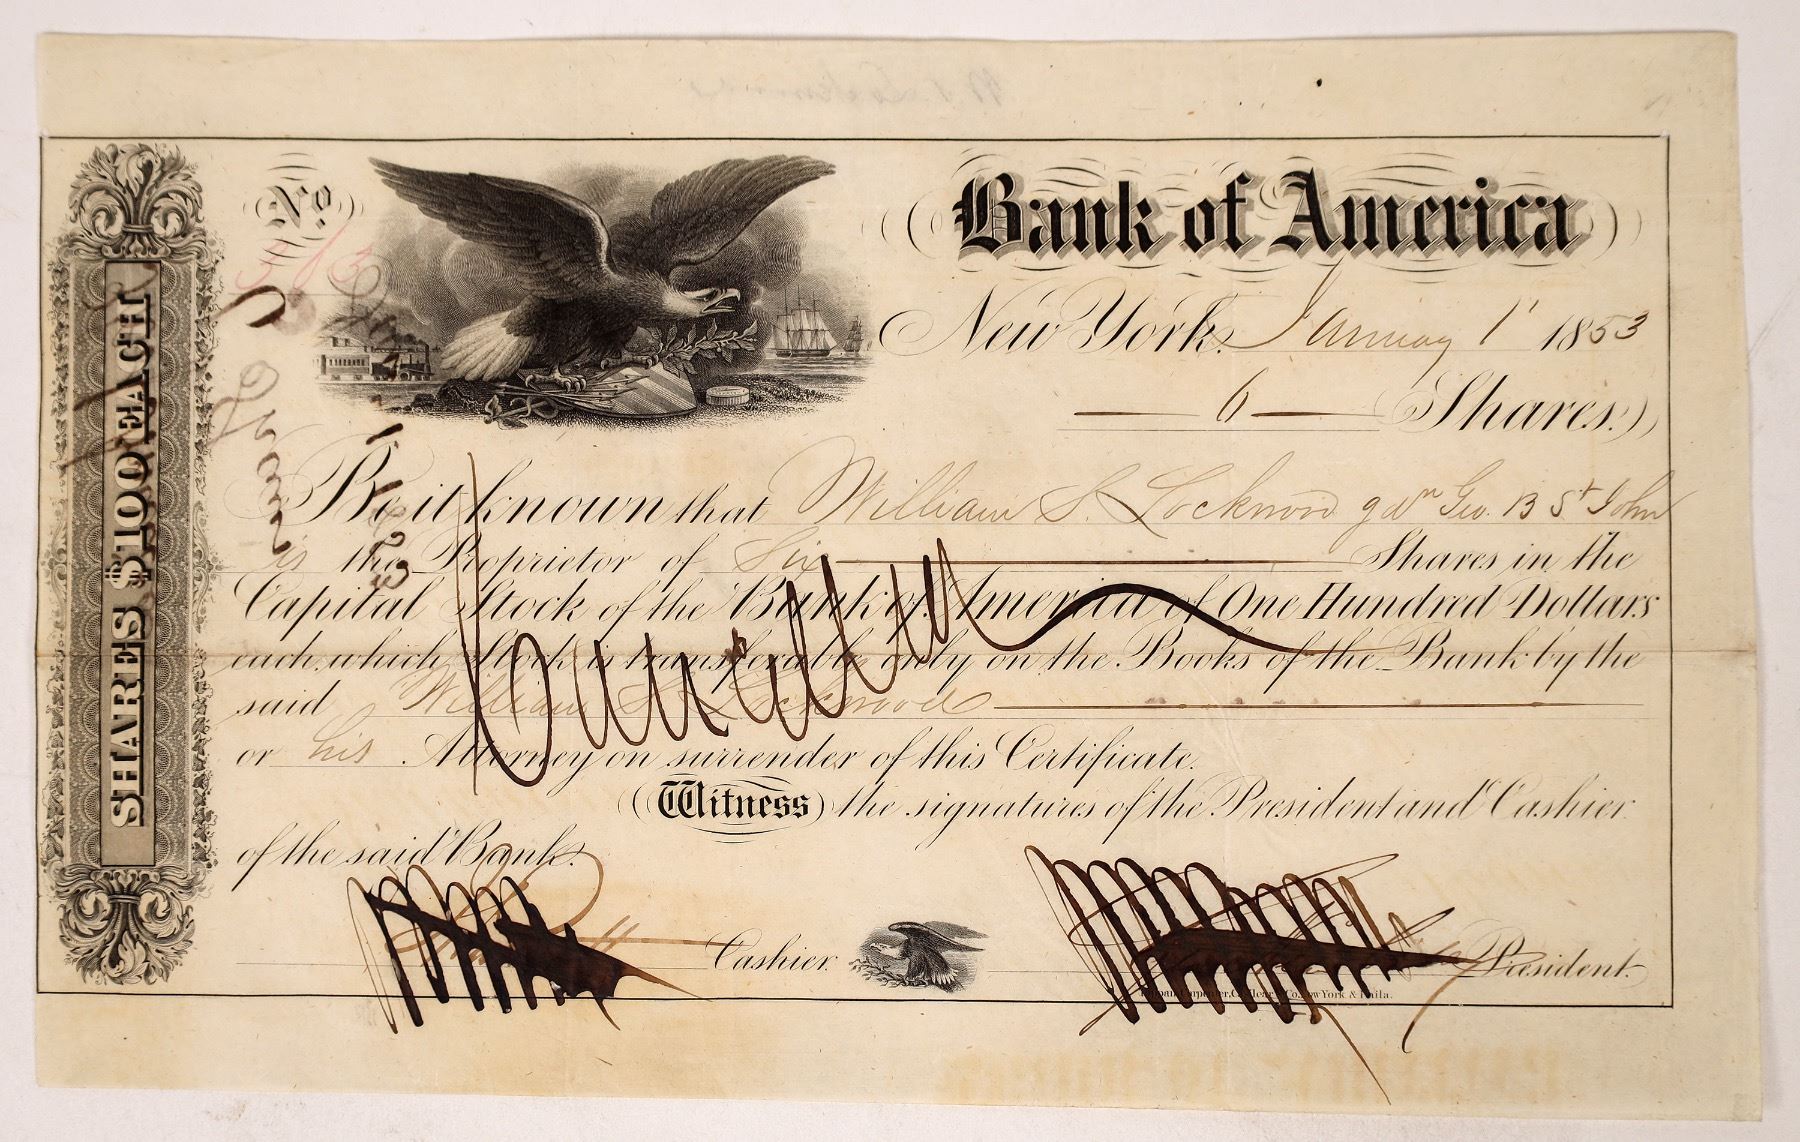 No
Bank of America
New York, January 1st 1853
6 Shares.
SHARES $100 EACH
Be it known that William S. Lockwood gdn Geo. B St John
is the Proprietor of Six Shares in the
Capital Stock of the Bank of America of One Hundred Dollars
each, which Stock is transferable only on the Books of the Bank by the
said William S. Lockwood
or his Attorney on surrender of this Certificate.
Witness the signatures of the President and Cashier
of the said Bank.
Cancelled
Cashier.
President.